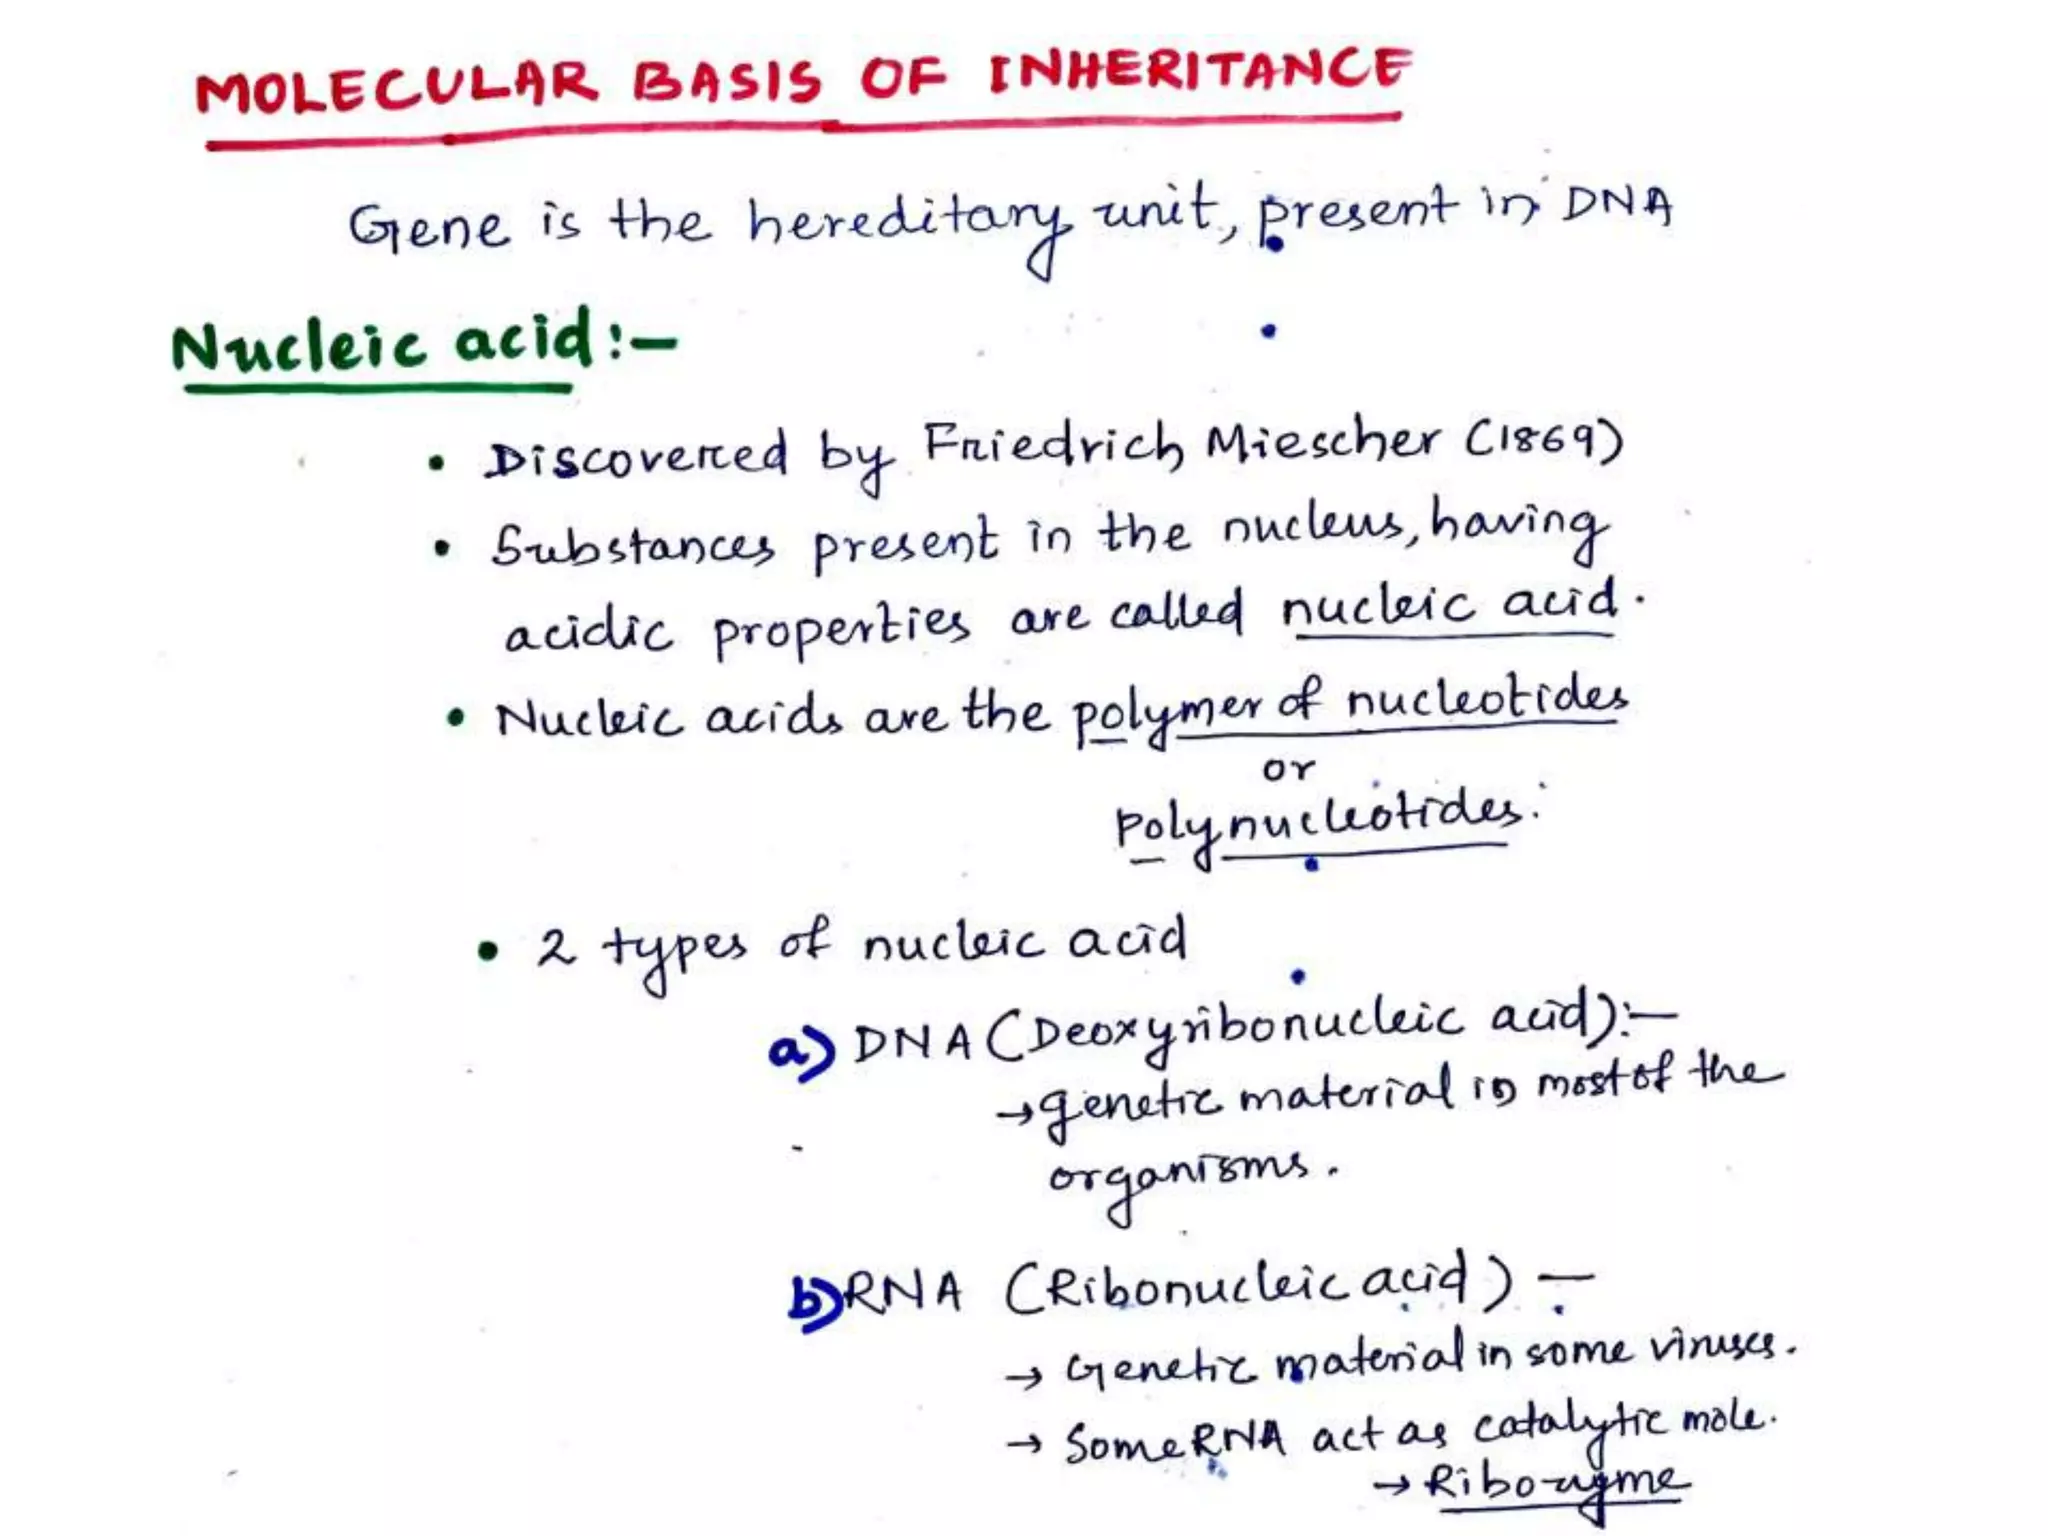 MOLECULAR BASIS OF INHERITANCE
Gene is the hereditary unit, present in DNA
Nucleic acid:-
• Discovered by Friedrich Miescher (1869)
• Substances present in the nucleus, having
acidic properties are called nucleic acid.
• Nucleic acids are the polymer of nucleotides
or
Polynucleotides.
• 2 types of nucleic acid
a) DNA (Deoxyribonucleic acid):-
→ genetic material in most of the
organisms.
b) RNA (Ribonucleic acid) -
→ Genetic material in some viruses.
→ Some RNA act as catalytic mole.
→ Ribozyme